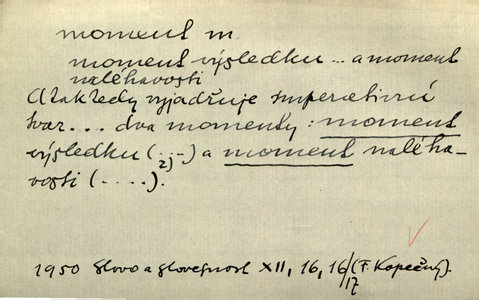 moment m.
moment výsledku ... a moment
naléhavosti
A tak tedy vyjadřuje imperativní
tvar ... dva momenty: moment
výsledku (....) a moment naléha-
vosti (.....).
1950 Slovo a slovesnost XII, 16, 16/17 (F. Kopečný).